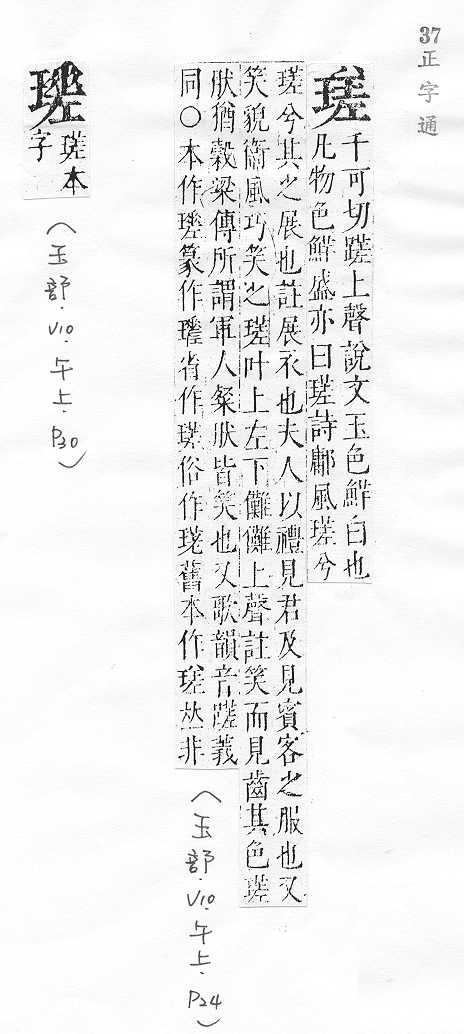 37正字通
瑳
千可切蹉上聲說文玉色鮮白也
凡物色鮮盛亦曰瑳詩鄘風瑳兮
瑳兮其之展也註展衣也夫人以禮見君及見賓客之服也又
笑貌衞風巧笑之瑳叶上左下儺儺上聲註笑而見齒其色瑳
狀猶穀梁傳所謂軍人粲狀皆笑也又歌韻音蹉義
同○本作篆作省作瑳俗作舊本作𠀤非
(玉部.V10.午上.P24)
瑳本
字
(玉部.V10.午上.P30)